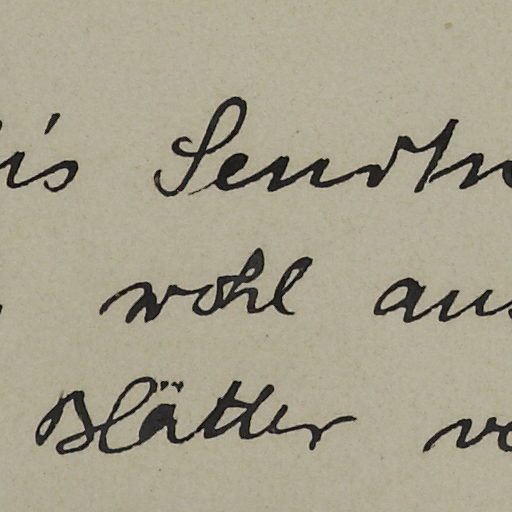 is Sendtn
wohl aus
Blätter vo